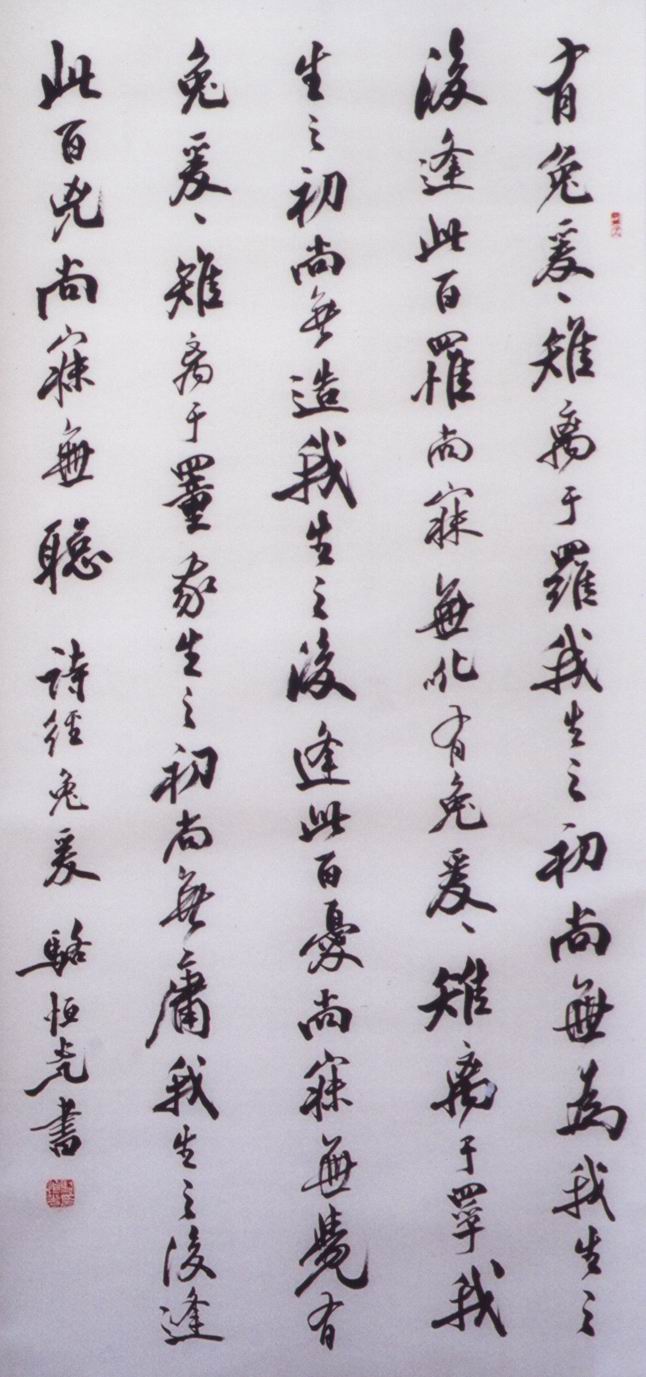 有兔爰、雉离于羅我生之初尚無為我生之
後逢此百罹尚寐無吪有兔爰、雉离于罦我
生之初尚無造我生之後逢此百憂尚寐無覺有
兔爰、雉离于罿我生之初尚無庸我生之後逢
此百凶尚寐無聰 詩經兔爰 駱恒光書